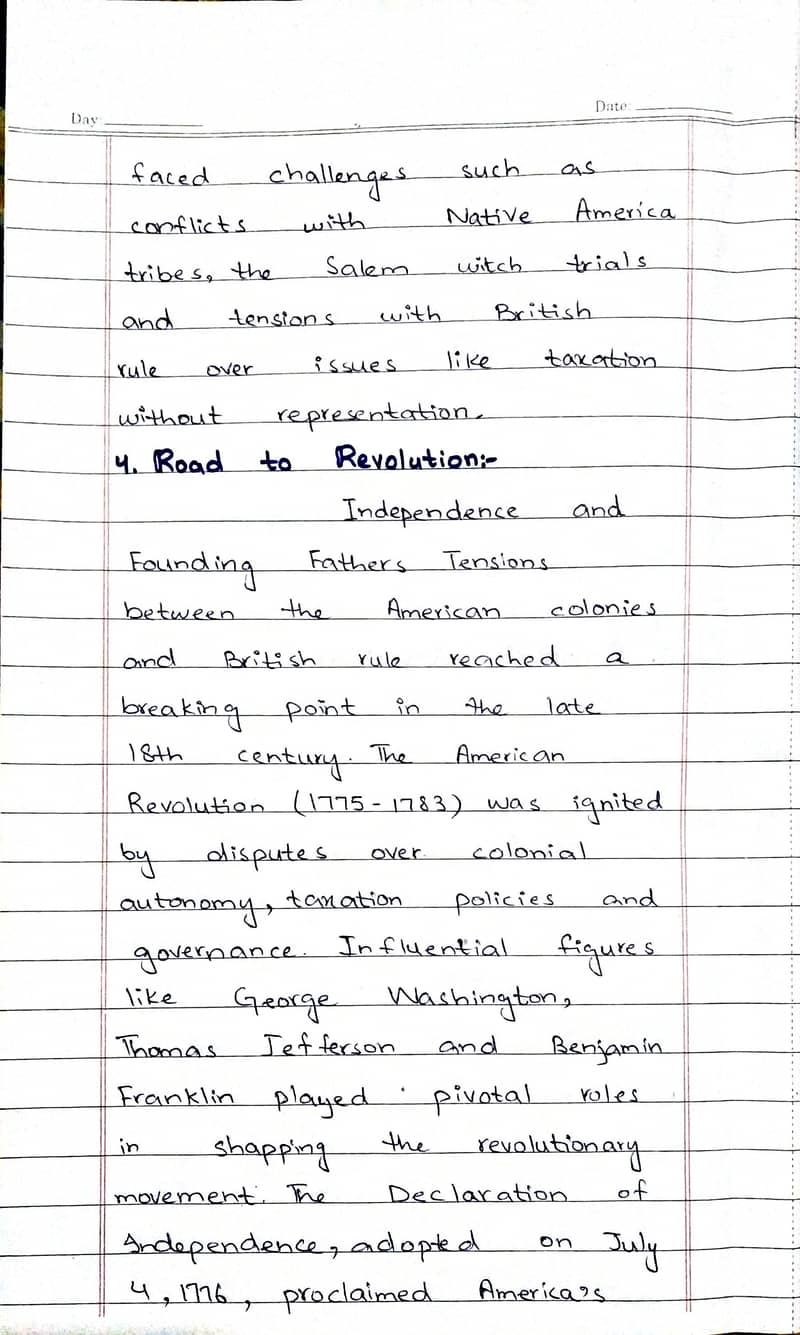 Day
Date:
faced challenges such as
conflicts with Native America
tribes, the Salem witch trials
and tensions with British
rule over issues like taxation
without representation.
4. Road to Revolution:-
Independence and
Founding Fathers Tensions
between the American colonies
and British rule reached a
breaking point in the late
18th century. The American
Revolution (1775-1783) was ignited
by disputes over colonial
autonomy, taxation policies and
governance. Influential figures
like George Washington,
Thomas Jefferson and Benjamin
Franklin played pivotal roles
in shapping the revolutionary
movement. The Declaration of
Independence, adopted on July
4, 1776, proclaimed America's